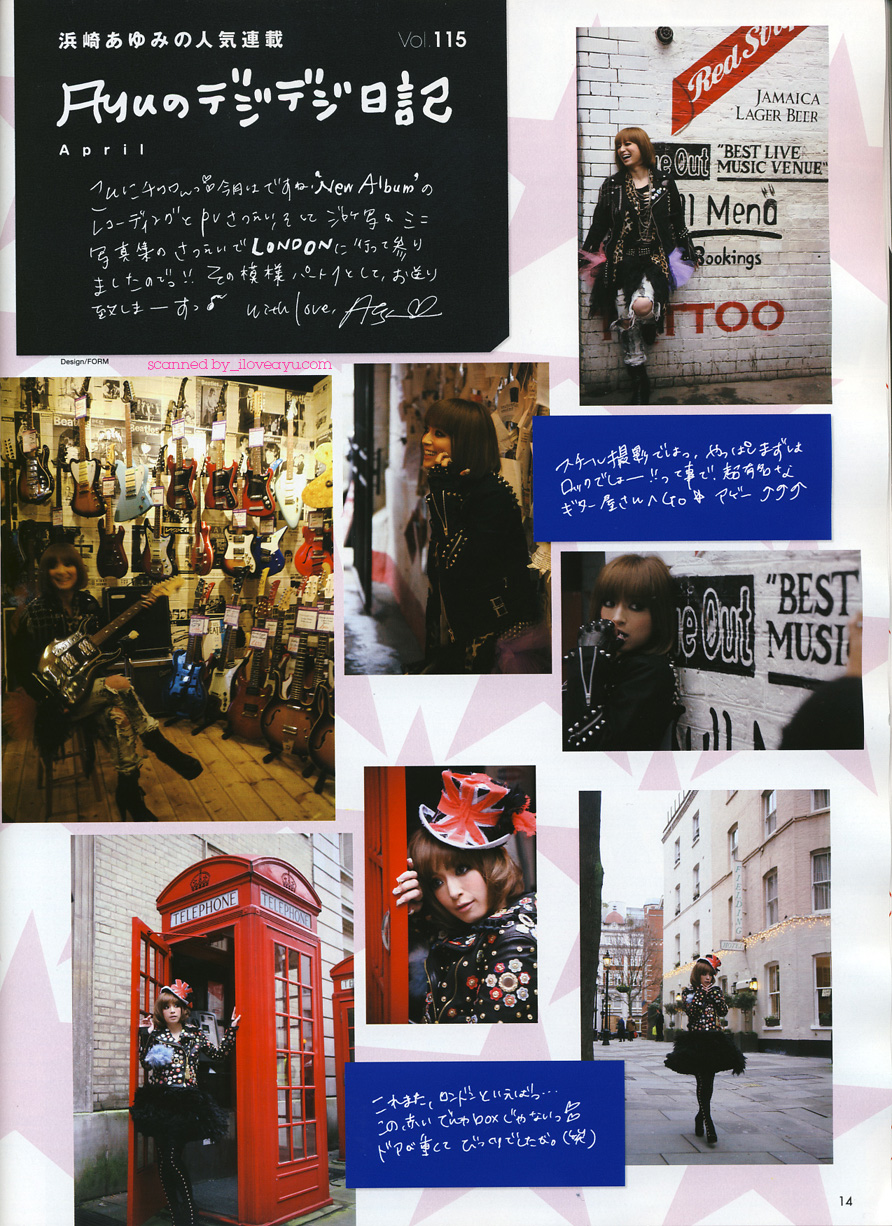 浜崎あゆみの人気連載
Vol.115
Ayuのデジデジ日記
April
こんにチワワんっ♡今月はですね、"New Album"の
レコーディングとpvさつえい、そして ジャケ写&ミニ
写真集のさつえいでLONDONに行って参り
ましたのでっ!! その模様パート1として、お送り
致しまーすっ♪ with love, Ayu♡
Design/FORM
scanned by_iloveayu.com
Red Stripe
JAMAICA
LAGER BEER
Out
"BEST LIVE
MUSIC VENUE"
Menu
Bookings
TATTOO
Beatles
スチール撮影ではっ、やっぱしまずは
ロックでしょー!!って事で、超有名な
ギター屋さんへGo アゲー↑↑↑
Out
"BEST
MUSI
TELEPHONE
TELEPHONE
FIELDING
HOTEL
これまた、ロンドンといえばっ…
この、赤いでんわboxじゃないっ
ドアが重くて びっくりでしたが。(笑)
14